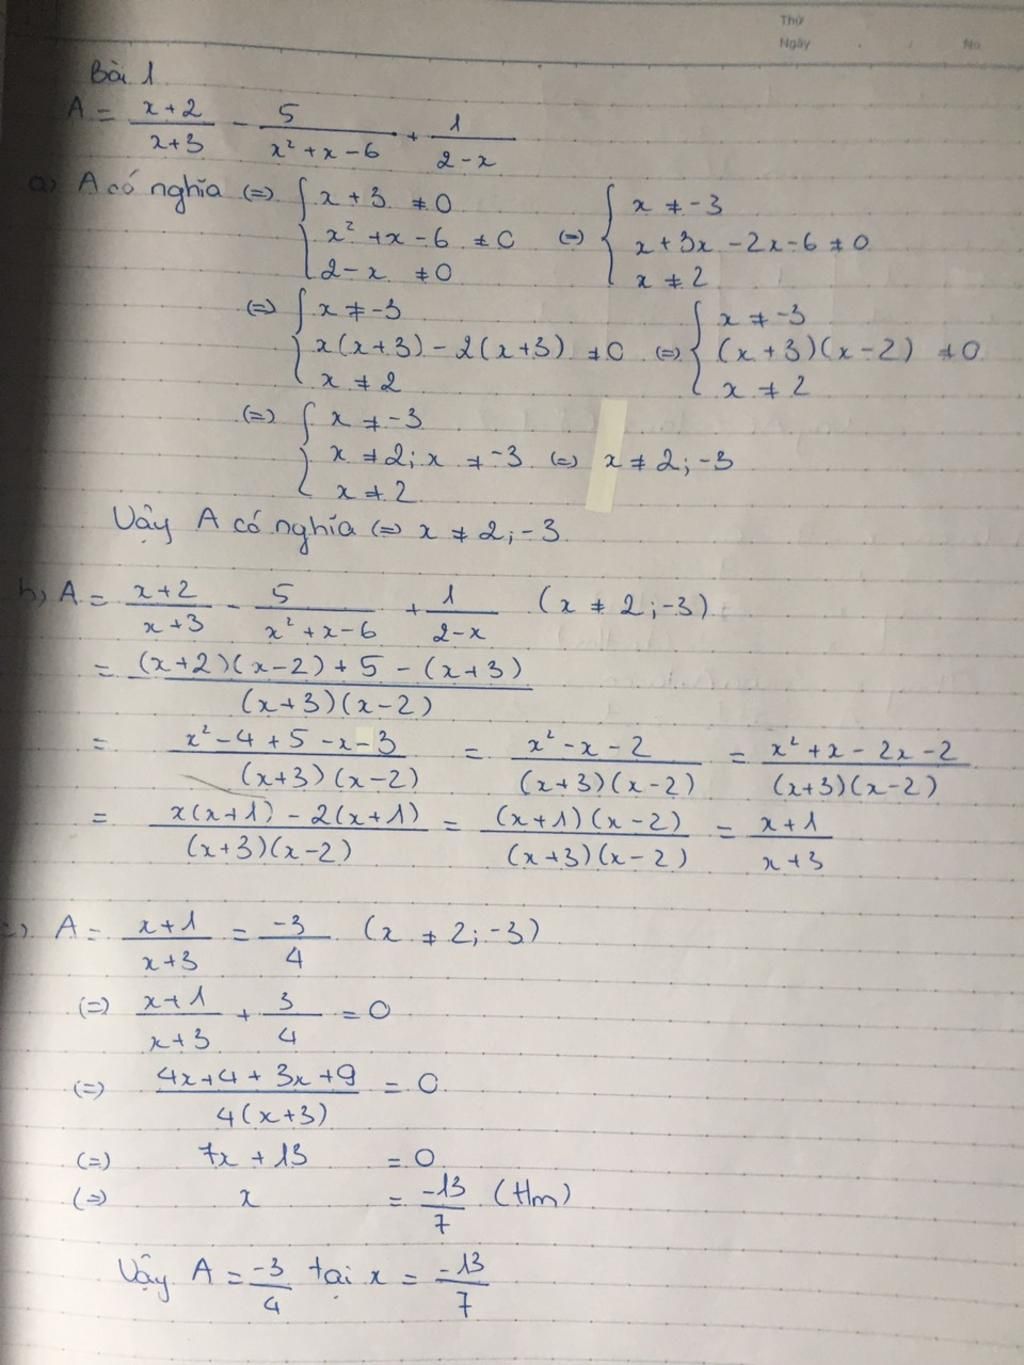 Thứ
Ngày No
Bài 1
A = (x+2)/(x+3) - 5/(x²+x-6) + 1/(2-x)
a) A có nghĩa (=) { x+3 ≠0 ; x²+x-6 ≠0 ; 2-x ≠0 (=) { x ≠ -3 ; x+3x-2x-6 ≠0 ; x ≠ 2
(=) { x ≠ -3 ; x(x+3) - 2(x+3) ≠0 ; x ≠ 2 (=) { x ≠ -3 ; (x+3)(x-2) ≠0 ; x ≠ 2
(=) { x ≠ -3 ; x ≠ 2; x ≠ -3 ; x ≠ 2 (=) x ≠ 2; -3
Vậy A có nghĩa (=) x ≠ 2; -3.
b) A = (x+2)/(x+3) - 5/(x²+x-6) + 1/(2-x) (x ≠ 2; -3)
= ((x+2)(x-2) + 5 - (x+3))/((x+3)(x-2))
= (x²-4+5-x-3)/((x+3)(x-2)) = (x²-x-2)/((x+3)(x-2)) = (x²+x-2x-2)/((x+3)(x-2))
= (x(x+1) - 2(x+1))/((x+3)(x-2)) = ((x+1)(x-2))/((x+3)(x-2)) = (x+1)/(x+3)
c) A = (x+1)/(x+3) = -3/4 (x ≠ 2; -3)
(=) (x+1)/(x+3) + 3/4 = 0
(=) (4x+4+3x+9)/(4(x+3)) = 0
(=) 7x + 13 = 0
(=) x = -13/7 (tm)
Vậy A = -3/4 tại x = -13/7